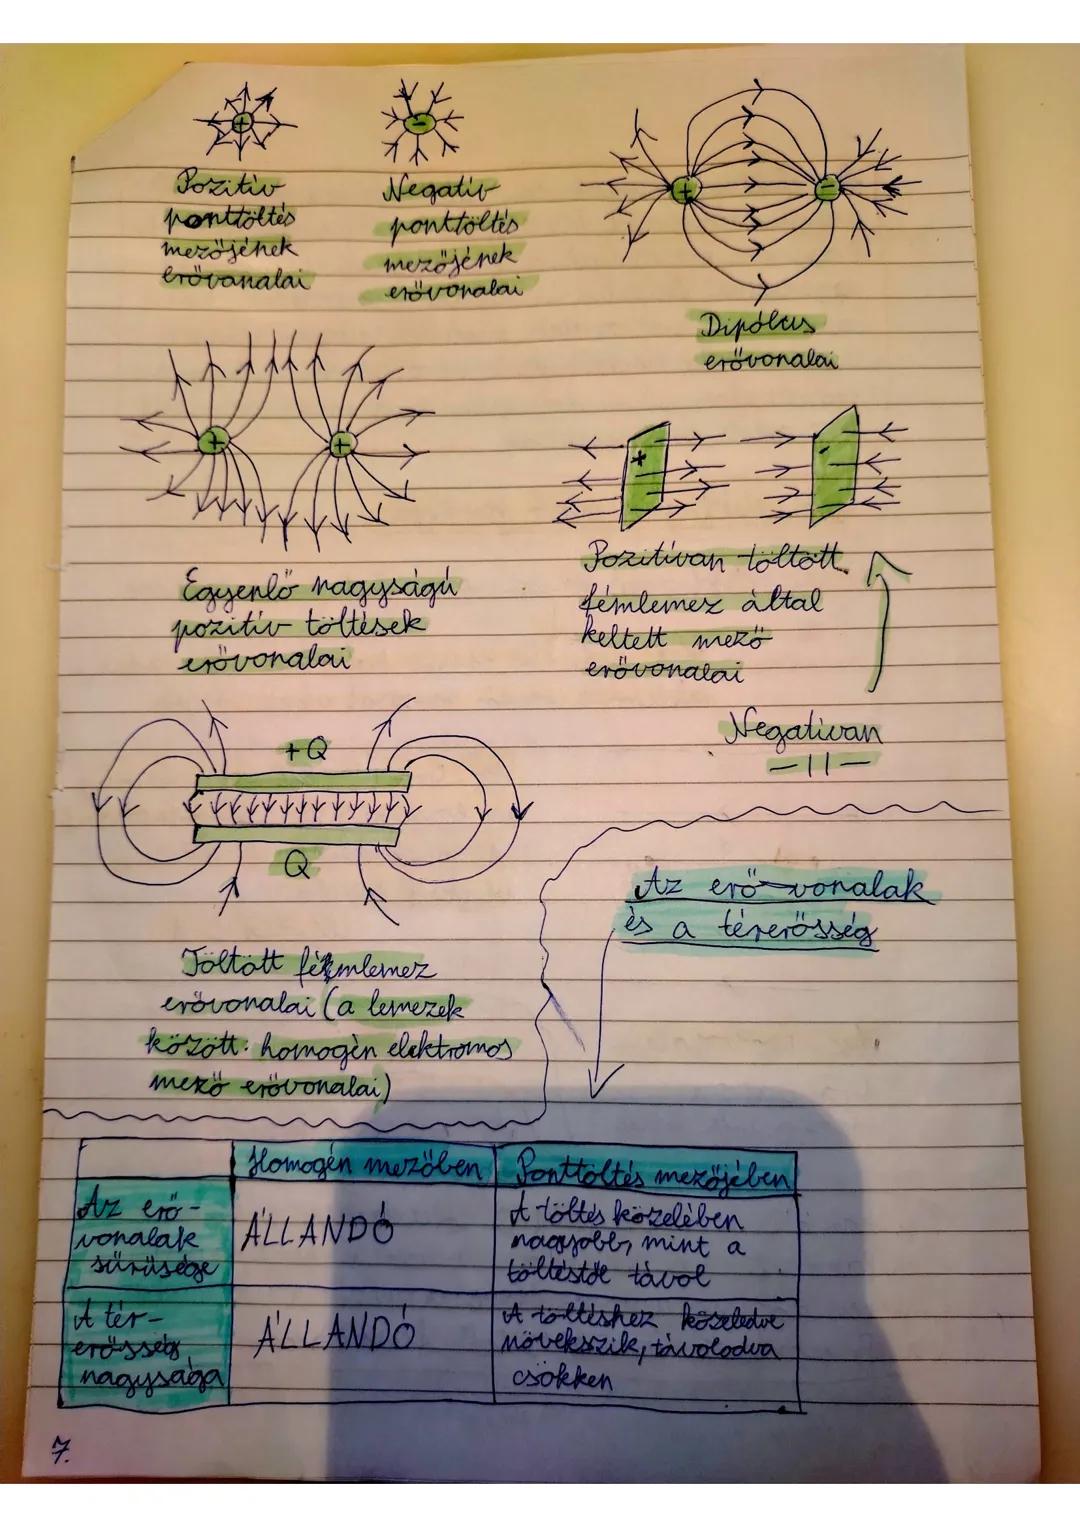 Pozitív
ponttöltés
mezőjének
erővanalai
Negatív
ponttöltés
mezőjének
erővonalai
Dipólus
erővonalai
Egyenlő nagyságú
pozitív töltések
erővonalai
Pozitívan töltött
fémlemez által
keltett mező
erővonalai
Negatívan
-11-
+Q
Q
Töltött fémlemez
erővonalai (a lemezek
között: homogén elektromos
mező erővonalai)
Az erő-vonalak
és a térerősség
Homogén mezőben
Ponttöltés mezőjében
Az erő-
vonalak
sűrűsége
ÁLLANDÓ
A töltés közelében
nagyobb, mint a
töltéstől távol
A tér-
erősség
nagysága
ÁLLANDÓ
A töltéshez közeledve
növekszik, távolodva
csökken
7.